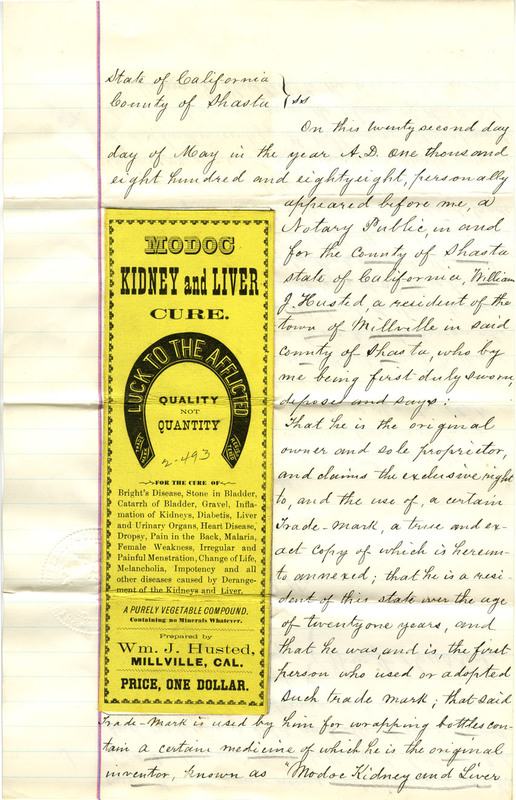 State of California
County of Shasta } ss
On this twenty second day
day of May in the year A.D. one thousand
eight hundred and eightyeight, personally
appeared before me, a
Notary Public, in and
for the County of Shasta
state of California, William
J. Husted, a resident of the
town of Millville in said
county of Shasta, who by
me being first duly sworn,
deposes and says:
That he is the original
owner and sole proprietor,
and claims the exclusive right
to, and the use of, a certain
Trade-Mark, a true and ex-
act copy of which is hereun-
to annexed; that he is a resi-
dent of this state over the age
of twentyone years, and
that he was and is, the first
person who used or adopted
such trade mark; that said
Trade-Mark is used by him for wrapping bottles con-
tain a certain medicine of which he is the original
inventor, known as "Modoc Kidney and Liver
MODOC
KIDNEY and LIVER
CURE.
LUCK TO THE AFFLICTED
TRADE MARK
QUALITY
NOT
QUANTITY
2-493
FOR THE CURE OF
Bright's Disease, Stone in Bladder,
Catarrh of Bladder, Gravel, Infla-
mation of Kidneys, Diabetis, Liver
and Urinary Organs, Heart Disease,
Dropsy, Pain in the Back, Malaria,
Female Weakness, Irregular and
Painful Menstration, Change of Life,
Melancholia, Impotency and all
other diseases caused by Derange-
ment of the Kidneys and Liver.
A PURELY VEGETABLE COMPOUND.
Containing no Minerals Whatever.
Prepared by
Wm. J. Husted,
MILLVILLE, CAL.
PRICE, ONE DOLLAR.